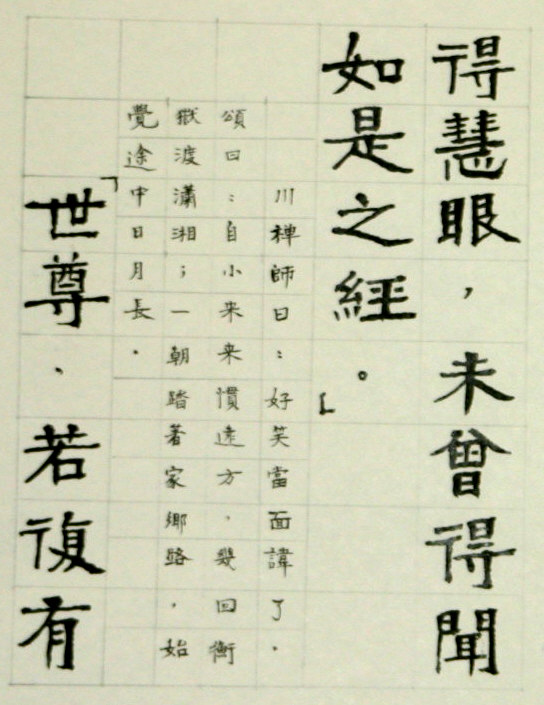 得慧眼，未曾得聞
如是之經。」
川禪師曰：好笑當面諱了．
頌曰：自小來來慣遠方，幾回衡
嶽渡瀟湘；一朝踏著家鄉路，始
覺途中日月長．
「世尊、若復有